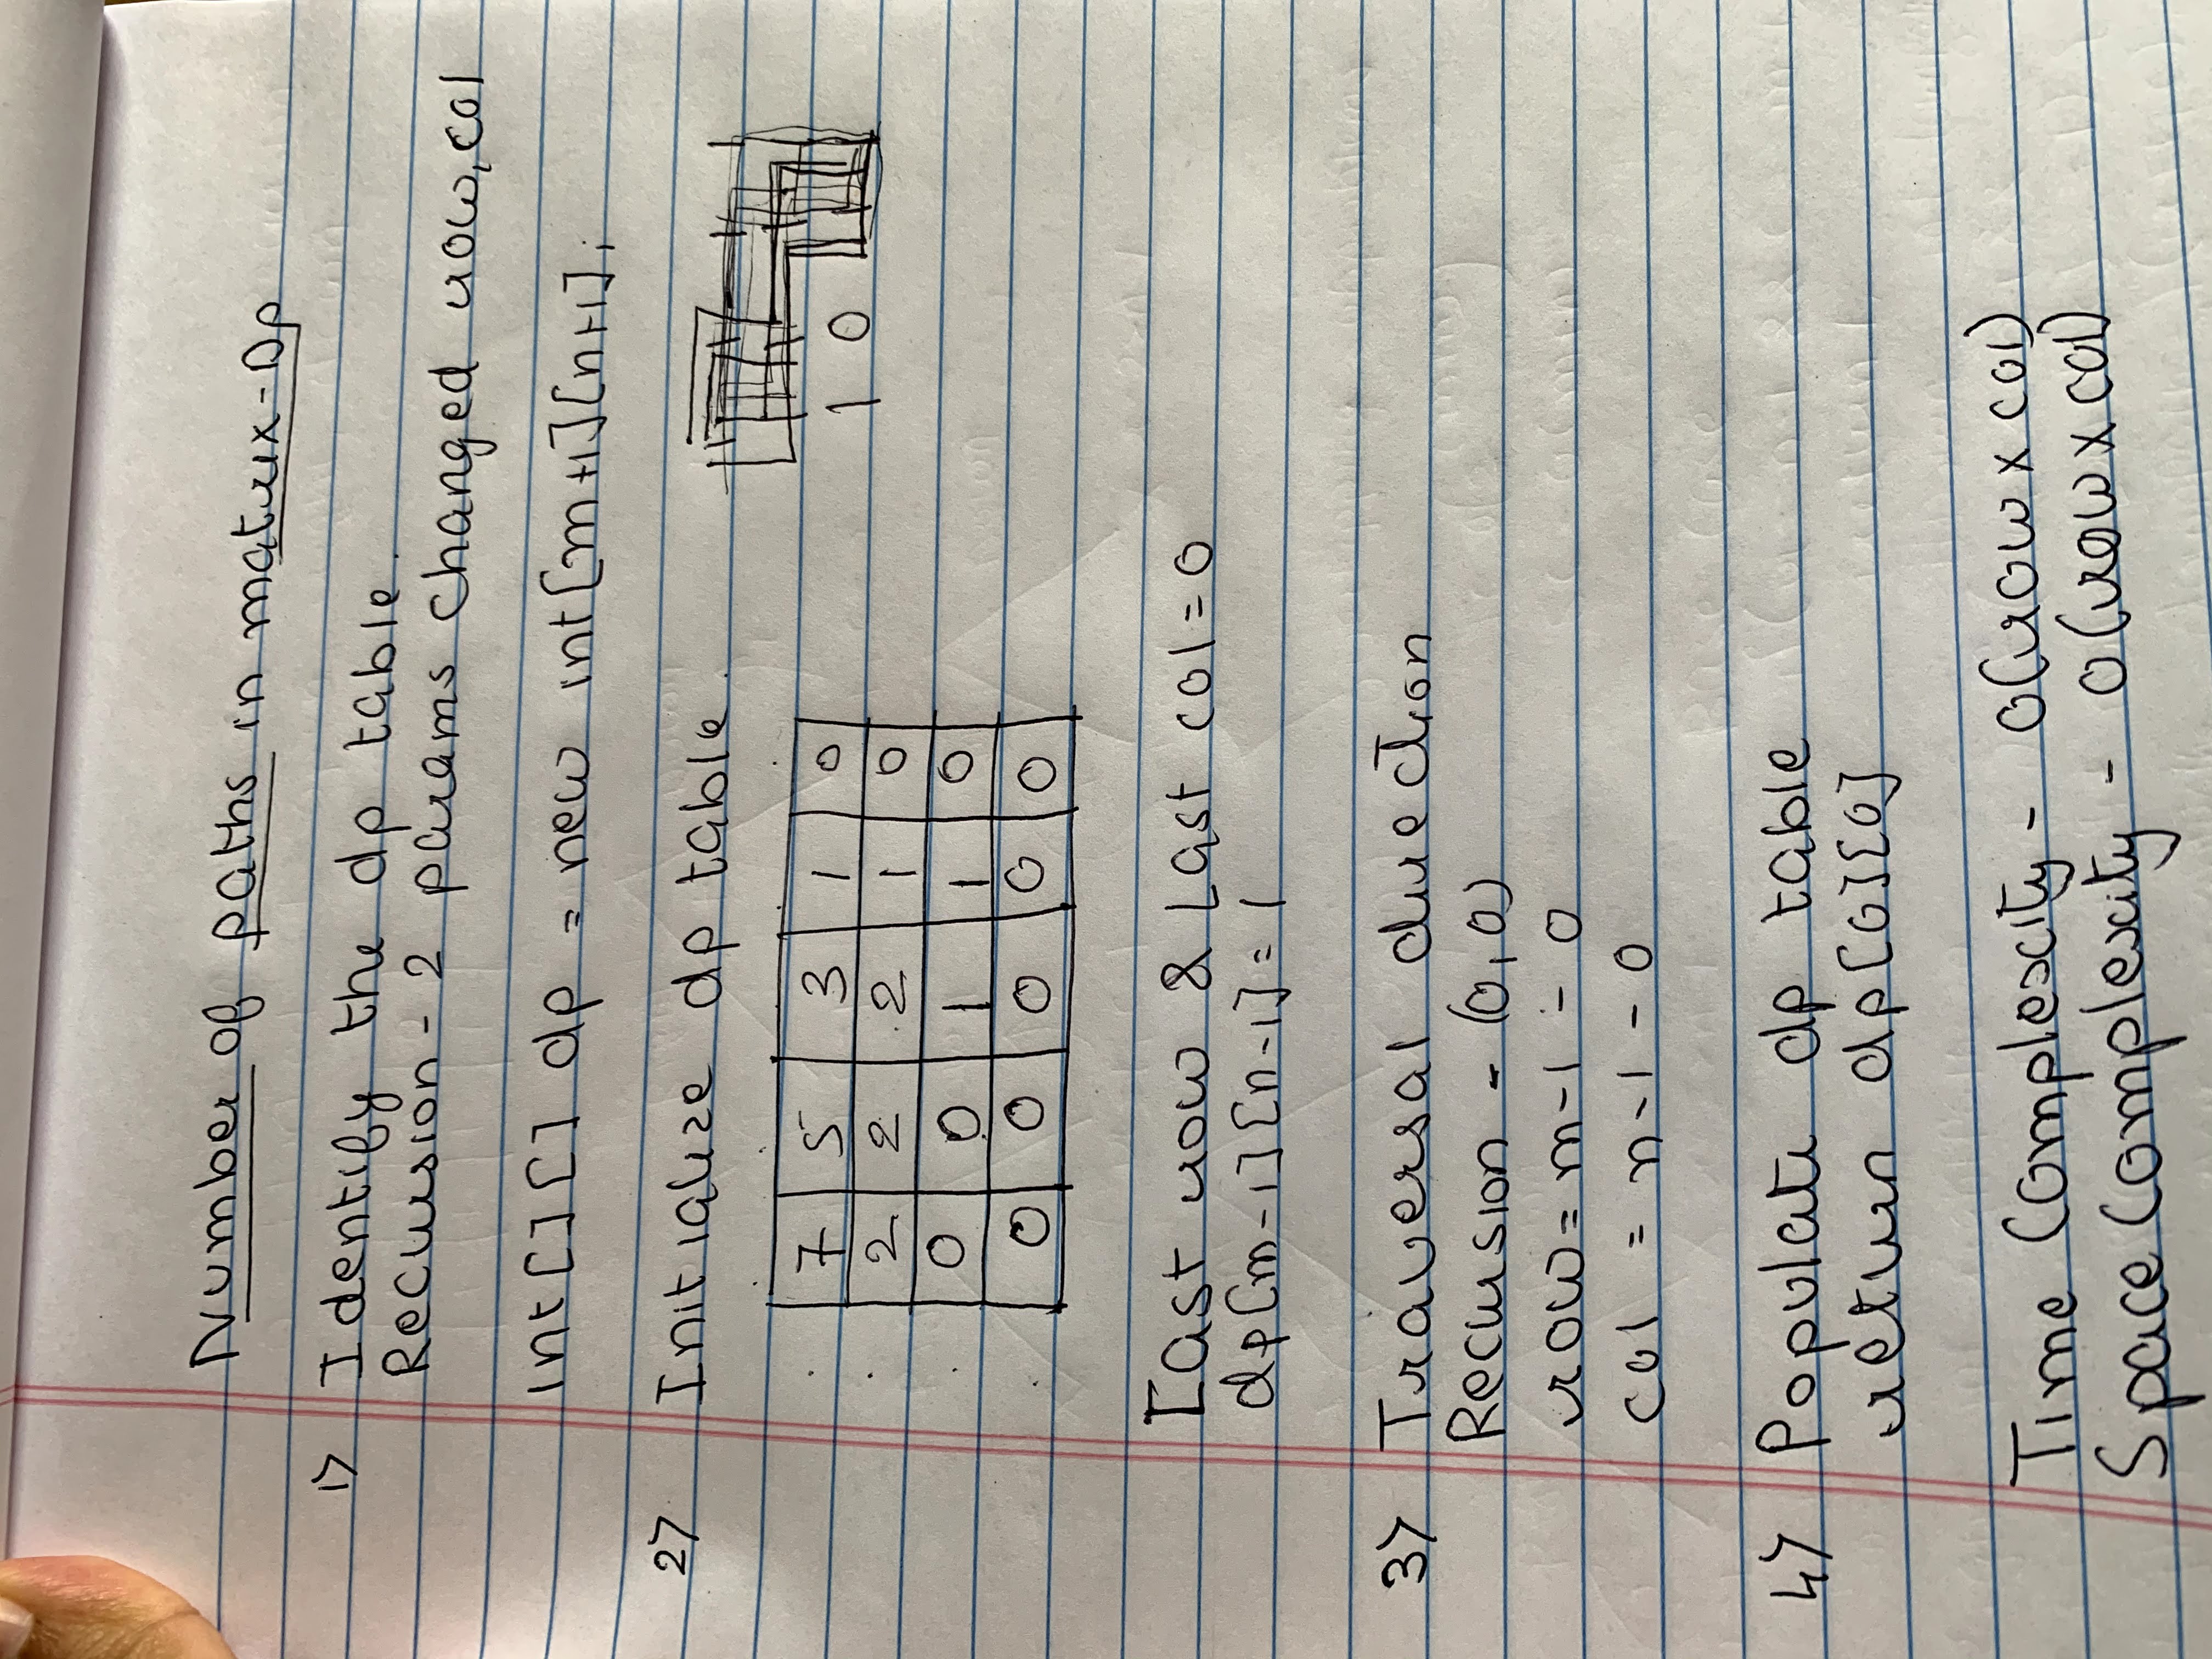 Number of paths in matrix-Dp
1> Identify the dp table.
Recursion - 2 params changed row, col
int[][] dp = new int[m+1][n+1];
2> Initialize dp table.
7 5 3 1 0
2 2 2 1 0
0 0 1 1 0
0 0 0 0 0
1 0
Last row & Last col = 0
dp[m-1][n-1] = 1
3> Traversal direction
Recursion - (0,0)
row = m-1 - 0
col = n-1 - 0
4> Populate dp table
return dp[0][0]
Time Complexity - O(row x col)
Space Complexity - O(row x col)